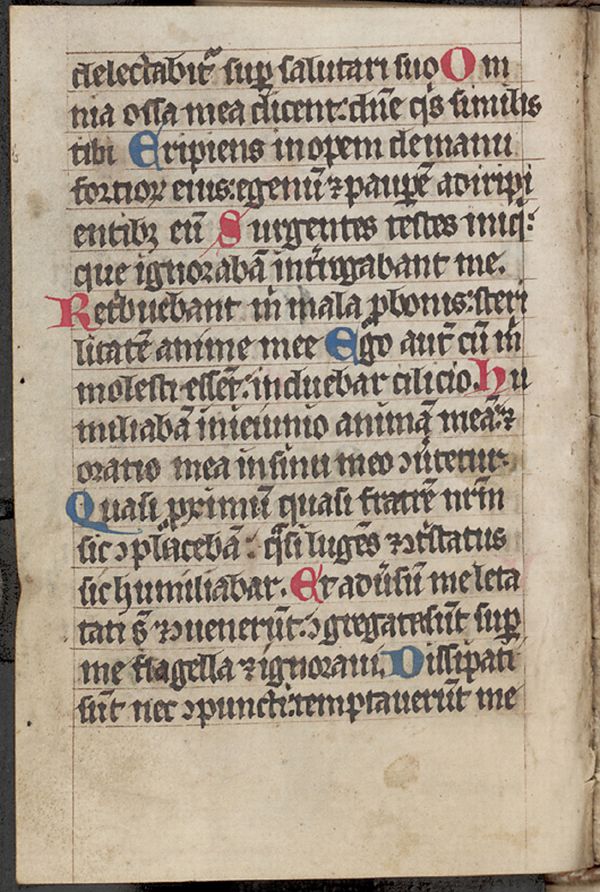 delectabit᷑ sup̱ salutari suo Om
nia ossa mea dicent: dn̄e q̇s similis
tibi Eripiens inopem de manu
fortior eius: egenū ⁊ paup̱ē a diripi
entibꝫ eū Surgentes testes iniq̇:
que ignorabā int̉rogabant me.
Ret̉buebant m̉ mala ꝓ bonis: steri
litatē anime mee Ego aut̄ cū m̉
molesti essēt: induebar cilicio. Hu
miliabā in ieiunio animā meā: ⁊
oratio mea in sinu meo ↄủtetur.
Quasi ꝓximū quasi fratrē nr̄m
sic ↄplacebā: q̇si lugēs ⁊ ↄt̉status
sic humiliabar. Et adūsū me leta
tati s̄ ⁊ ↄuenerūt: ↄgregata sūt sup̱
me flagella ⁊ ignoraui. Dissipati
sūt nec ↄpuncti: temptauerūt me